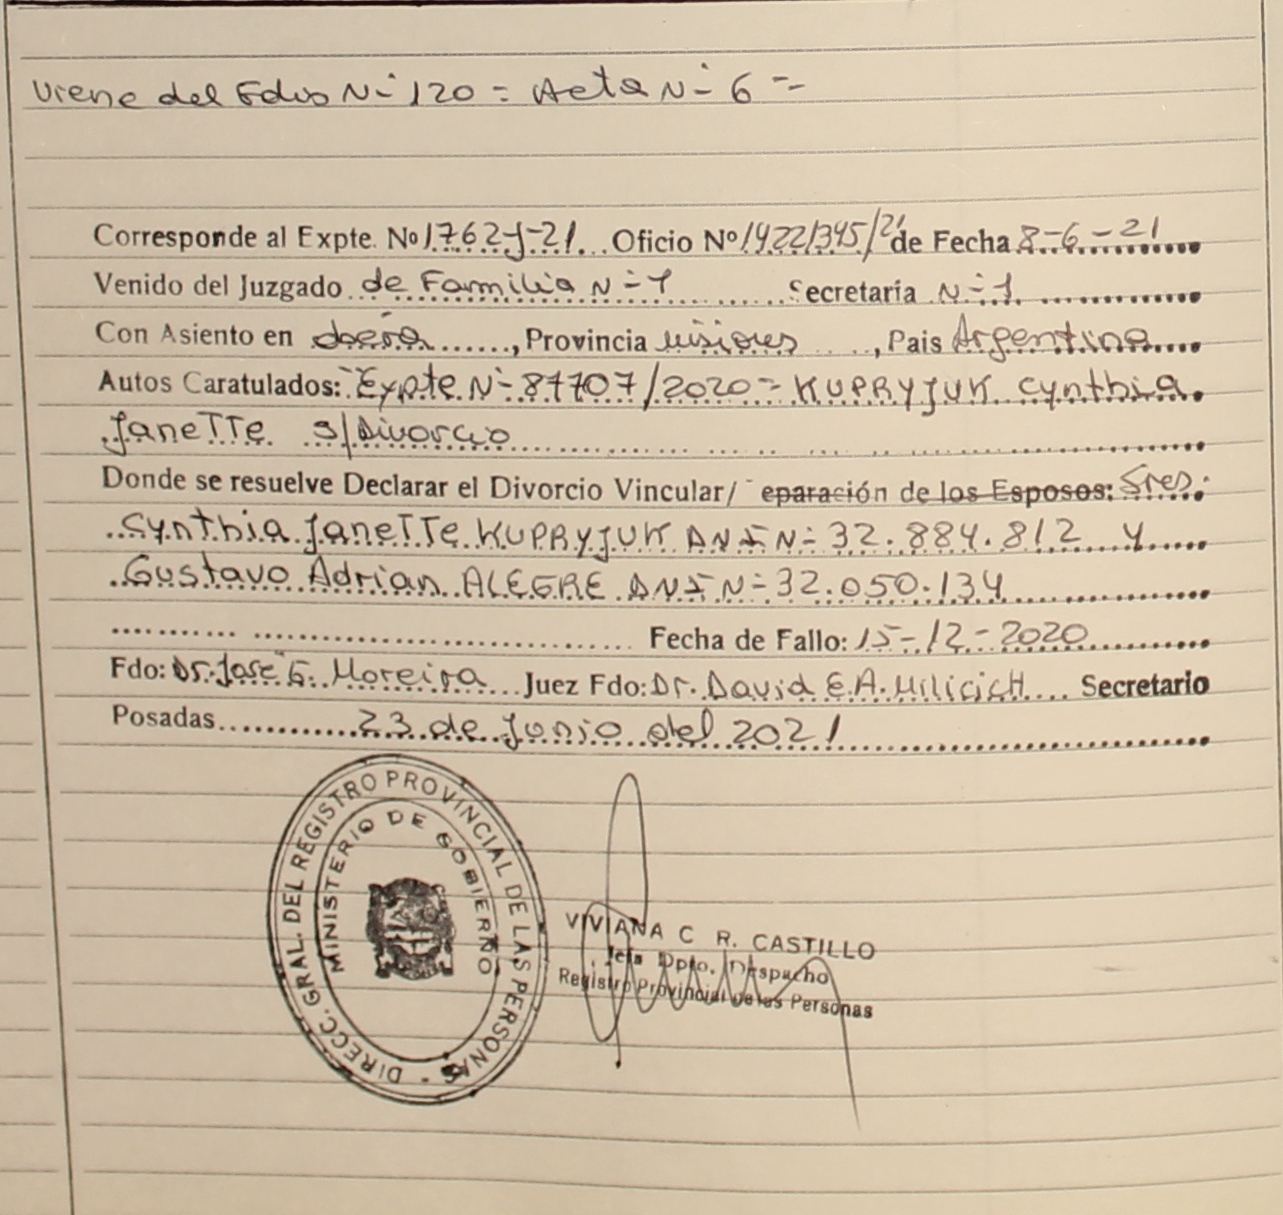 Viene del Folio N- 120 = Acta N- 6 =-
Corresponde al Expte. Nº 1762-J-21... Oficio Nº 1422/345/21 de Fecha 8-6-21
Venido del Juzgado de Familia N-1 Secretaría N-1
Con Asiento en Oberá, Provincia Misiones, Pais Argentina
Autos Caratulados: Expte N- 87707/2020= KUPRYJUK Cynthia
Janette s/Divorcio
Donde se resuelve Declarar el Divorcio Vincular/ eparación de los Esposos: Sres.
Cynthia Janette KUPRYJUK DNI N- 32.884.812 y
Gustavo Adrian ALEGRE DNI N- 32.050.134
Fecha de Fallo: 15-12-2020
Fdo: Dr. Jose G. Moreira Juez Fdo: Dr. David E.A. Milicich Secretario
Posadas 23 de Junio del 2021
DIRECC. GRAL. DEL REGISTRO PROVINCIAL DE LAS PERSONAS -
MINISTERIO DE GOBIERNO
VIVIANA C R. CASTILLO
Jefa Dpto. Despacho
Registro Provincial de las Personas